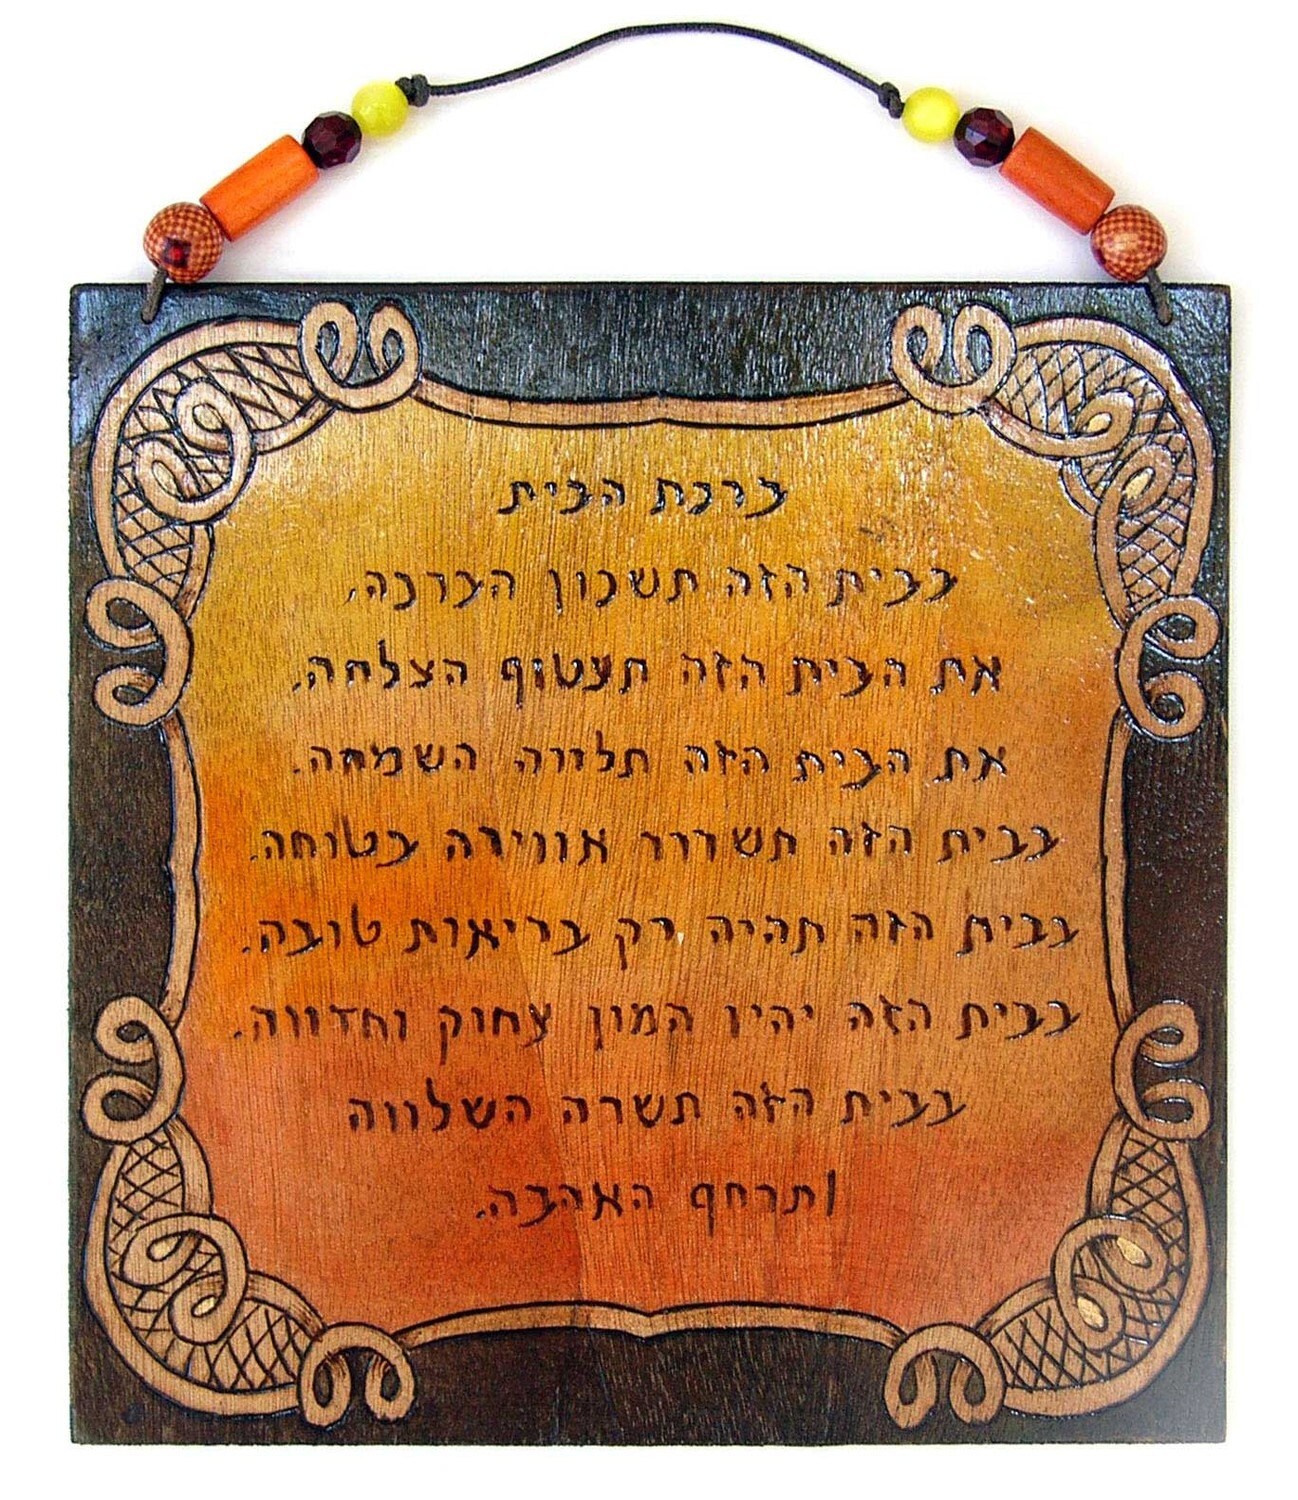 ברכת הבית
בבית הזה תשכון הברכה.
את הבית הזה תעטוף הצלחה.
את הבית הזה תלווה השמחה.
בבית הזה תשרור אווירה בטוחה.
בבית הזה תהיה רק בריאות טובה.
בבית הזה יהיו המון צחוק וחדווה.
בבית הזה תשרה השלווה
ותרחף האהבה.